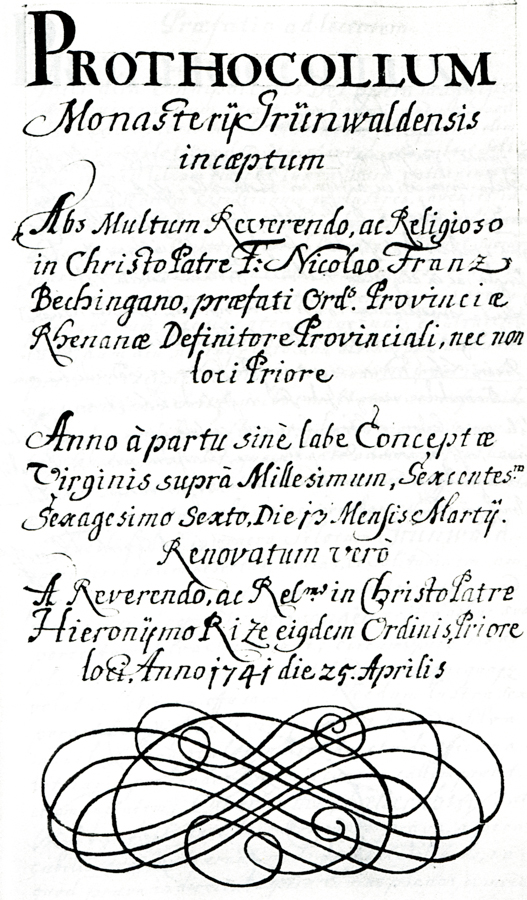 PROTHOCOLLUM
Monasterij Grünwaldensis
incæptum
Abs Multum Reverendo, ac Religioso
in Christo Patre F: Nicolao Franz
Bechingano, præfati Ord.s Provinciæ
Rhenanæ Definitore Provinciali, nec non
loci Priore
Anno à partu sinè labe Conceptæ
Virginis suprà Millesimum, Sexcentes.m
Sexagesimo Sexto, Die 13 Mensis Martij.
Renovatum verò
A Reverendo, ac Rel.mo in Christo Patre
Hieronÿmo Rize eigdem Ordinis, Priore
loci, Anno 1741 die 25. Aprilis